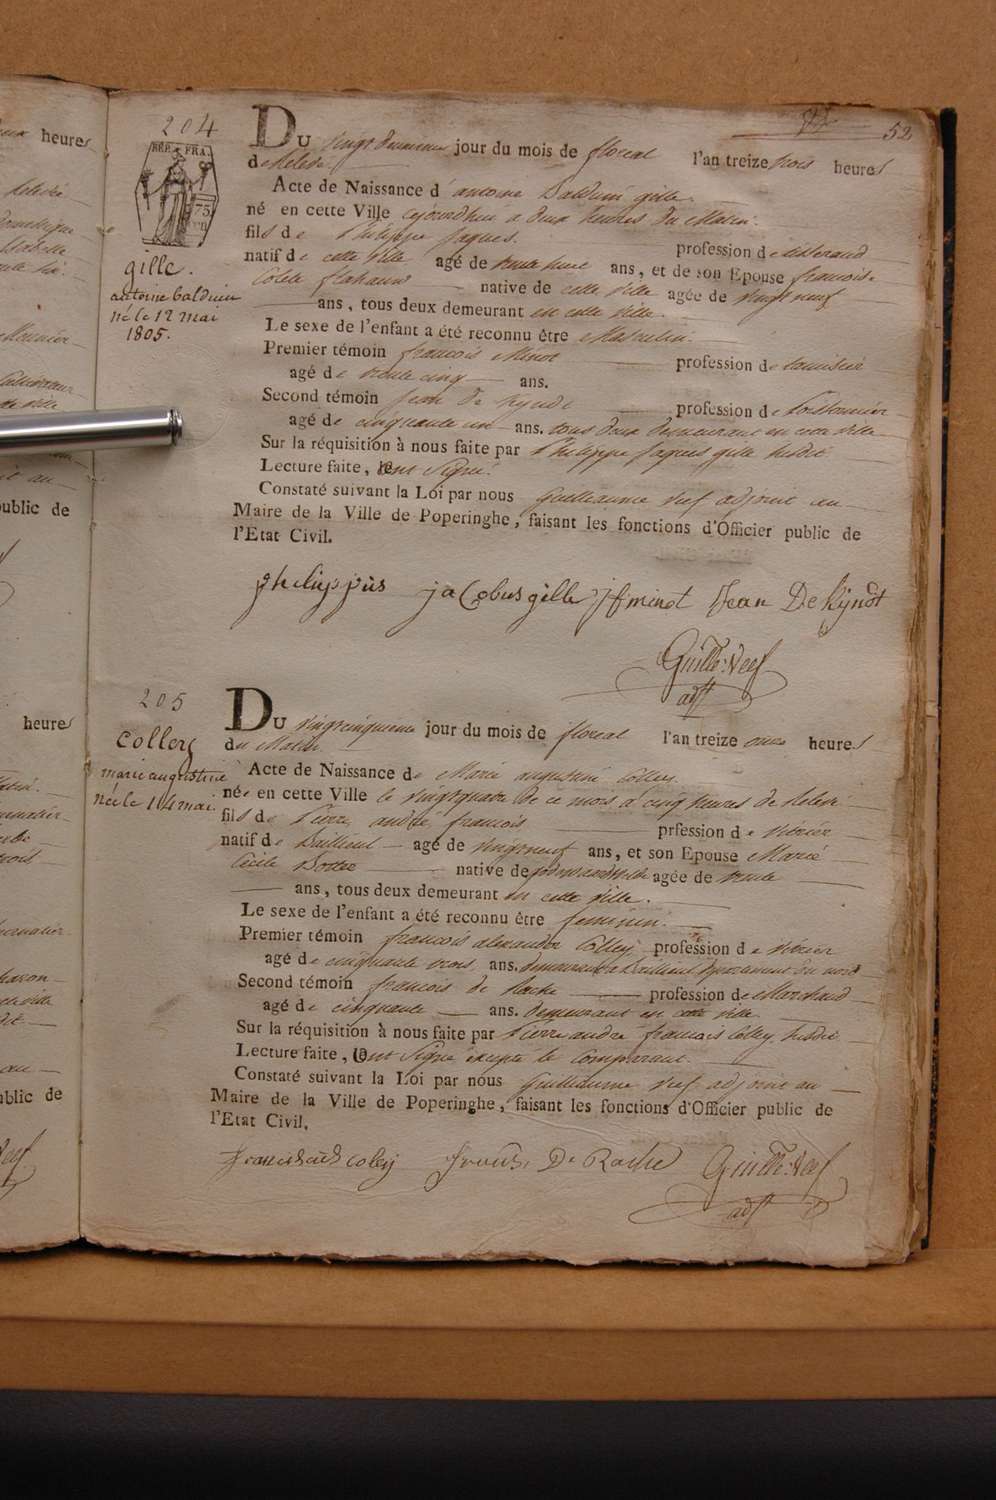 204
52
REP. FRA.
75
gille.
antoine balduin
né le 12 mai
1805.
DU vingt deuxieme jour du mois de floreal l'an treize trois heures
de Relevée
Acte de Naissance d'antoine Balduin gille.
né en cette Ville cejourdhui a deux heures du Matin.
fils de Philippe Jaques. profession de tisserand
natif de cette ville agé de trente huit ans, et de son Epouse francoise
Colete flahauw native de cette ville agée de vingt neuf
ans, tous deux demeurant en cette ville.
Le sexe de l'enfant a été reconnu être Masculin.
Premier témoin francois Minot profession de
agé de trente cinq ans.
Second témoin Jean De Kyndt profession de
agé de cinquante un ans. tous deux demeurant en cette ville
Sur la réquisition à nous faite par Philippe Jaques gille susdit
Lecture faite, ont signé.
Constaté suivant la Loi par nous Guilleaume Veef adjoint au
Maire de la Ville de Poperinghe, faisant les fonctions d'Officier public de
l'Etat Civil.
philippus jacobus gille jf minot Jean De Kyndt
Guille. Veef
adjt
205
colley
marie augustine
née le 14 mai.
DU vingtcinquieme jour du mois de floreal l'an treize onze heures
du Matin
Acte de Naissance de Marie augustine Colley.
née en cette Ville le vingtquatre de ce mois a cinq heures de Relevée
fils de Pierre andré francois prfession de
natif de Bailleul agé de vingtneuf ans, et son Epouse Marie
Cecile native de agée de trente
ans, tous deux demeurant en cette Ville.
Le sexe de l'enfant a été reconnu être feminin.
Premier témoin francois alexandre Colley profession de
agé de cinquante trois ans. demeurant a Bailleul Departement du nord
Second témoin francois de Rache profession de Marchand
agé de cinquante ans. demeurant en cette ville
Sur la réquisition à nous faite par Pierre andré francois Colley susdit
Lecture faite, ont signé excepté le Comparant.
Constaté suivant la Loi par nous Guilleaume Veef adjoint au
Maire de la Ville de Poperinghe, faisant les fonctions d'Officier public de
l'Etat Civil.
De Rache Guille. Veef
adjt
heures
public de
heures
public de